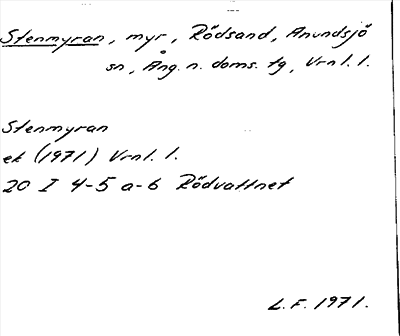 Stenmyran, myr, Rödsand, Anundsjö
sn, Ång. n. doms. tg, Vrnl. l.
Stenmyran
ek (1971) Vrnl. l.
20 I 4-5 a-b Rödvattnet
L.F. 1971.